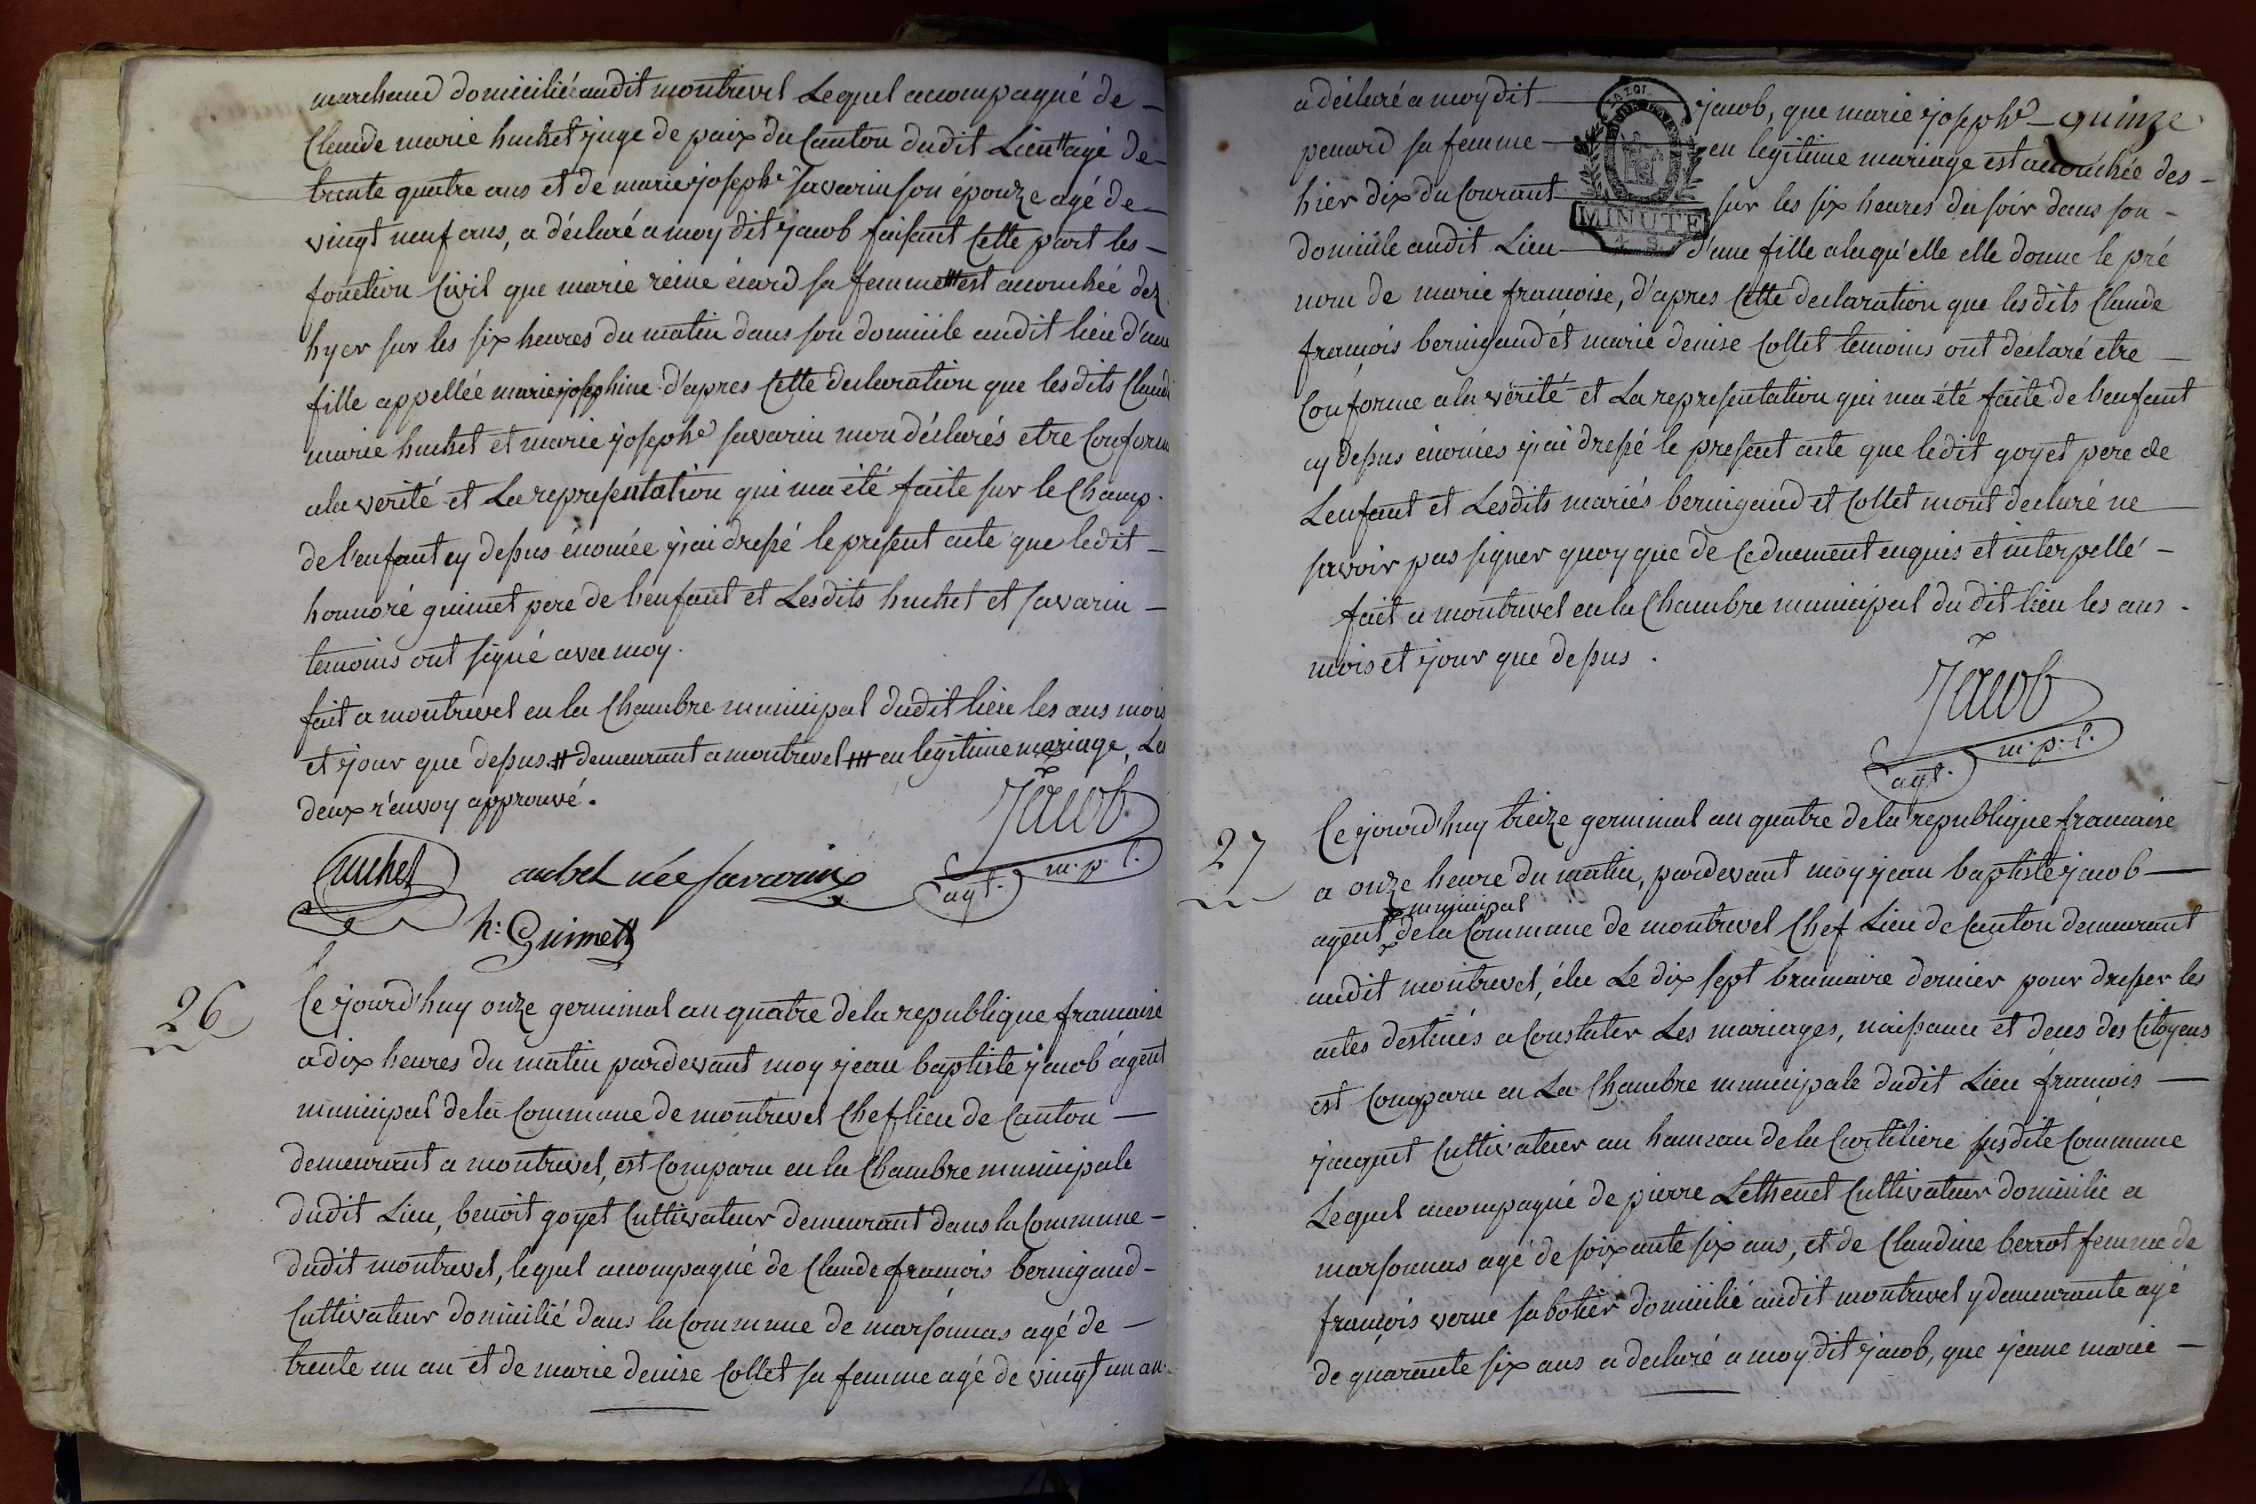 marchand domicilié audit montrevel Lequel acompagné de
Claude marie huchet juge de paix du Canton dudit Lieu # agé de
trente quatre ans et de marie josephe savarin son épouze agé de
vingt neuf ans, a déclaré a moy dit jacob faisant Cette part les
fonction Civil que marie reine écard sa femme ## est acouchée dez
hyer sur les six heures du matin dans son domicile audit lieu d'une
fille appellée marie josephine d'apres Cette declaration que lesdits Claude
marie huchet et marie josephe savarin mon déclarés etre Conforme
ala verité et La representation qui ma été faite sur le Champ
de l'enfant cy dessus énomée j'ai dressé le présent acte que ledit
honnoré guimet pere de l'enfant et Lesdits huchet et savarin
temoins ont signé avec moy.
fait a montrevel en la Chambre municipal dudit lieu les ans mois
et jour que dessus # demeurant a montrevel ## en legitime mariage, Les
deux r'envoy approuvé.
Jacob
agt. m.p.l.
huchet
née savarin
h: Guimet
26
Ce jourd'huy onze germinal an quatre dela republique francaise
a dix heures du matin pardevant moy jean baptiste jacob agent
municipal dela Commune de montrevel Chef lieu de Canton
demeurant a montrevel, est Comparu en la Chambre municipale
dudit Lieu, benoit goyet Cultivateur demeurant dans la Commune
dudit montrevel, lequel acompagné de Claude francois bernigaud
Cultivateur domicilié dans la Commune de marsonnas agé de
trente un an et de marie denise Collet sa femme agé de vingt un an
quinze
a déclaré a moy dit jacob, que marie josephe
penard sa femme en legitime mariage est acouchée des
hier dix du Courant sur les six heures du soir dans son
domicile audit Lieu d'une fille alaqu'elle elle donne le pré
MINUTE
nom de marie francoise, d'apres Cette declaration que lesdits Claude
francois bernigaud et marie denise Collet temoins ont declaré etre
Conforme ala vérité et La representation qui ma été faite de l'enfant
cy dessus énomés j'ai dressé le present acte que ledit goyet pere de
L'enfant et Lesdits mariés bernigaud et Collet mont declaré ne
savoir pas signer quoy que de Ce duement enquis et interpellé
fait a montrevel en la Chambre municipal du dit lieu les ans
mois et jour que dessus.
Jacob
agt. m.p.l.
27
Ce jourd'huy treize germinal an quatre dela republique francaise
a onze heure du matin, pardevant moy jean baptiste jacob
municipal
agent dela Commune de montrevel Chef Lieu de Canton demeurant
audit montrevel, élu Le dix sept brumaire dernier pour dresser les
actes destinés a Constater Les mariages, naissance et deces des Citoyens
est Comparu en La Chambre municipale dudit Lieu francois
jacquet Cultivateur au hameau dela Curtiliere susdite Commune
Lequel acompagné de pierre Lethenet Cultivateur domicilié a
marsonnas agé de soixante six ans, et de Claudine berrot femme de
francois verne sabotier domicilié audit montrevel y demeurante agé
de quarante six ans a declaré a moy dit jacob, que jeanne marie